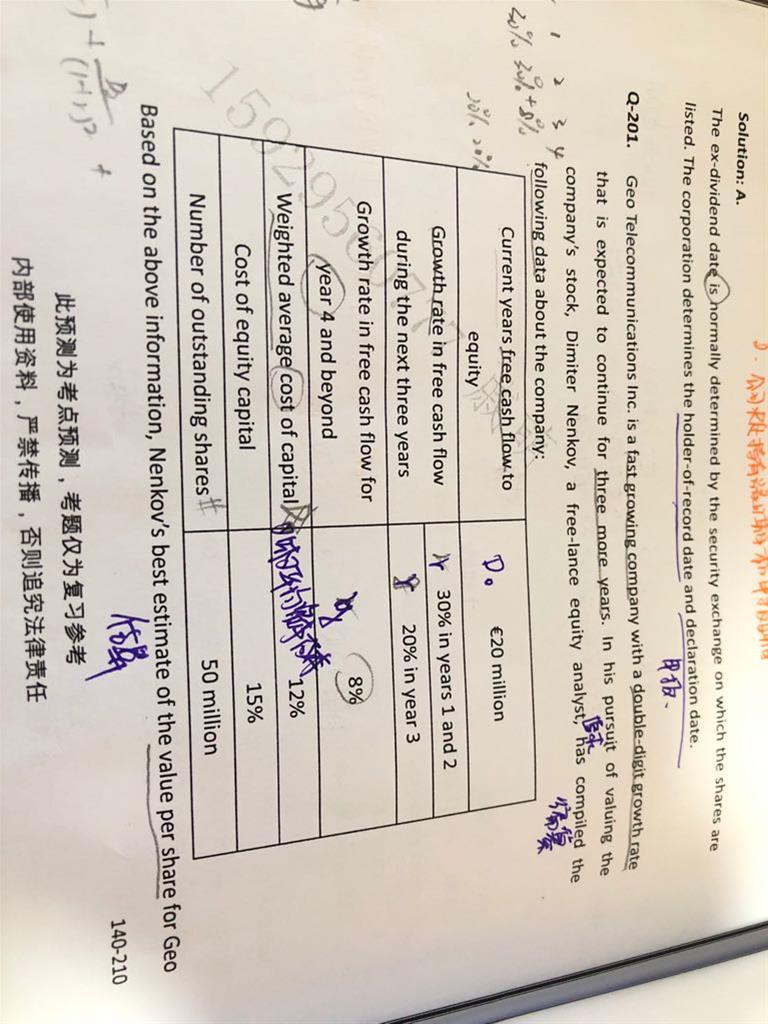 Solution: A.
The ex-dividend date is normally determined by the security exchange on which the shares are
listed. The corporation determines the holder-of-record date and declaration date.
Q-201. Geo Telecommunications Inc. is a fast growing company with a double-digit growth rate
that is expected to continue for three more years. In his pursuit of valuing the
company's stock, Dimiter Nenkov, a free-lance equity analyst, has compiled the
following data about the company:
1 2 3 4
30% 30% + 8%
20% 20%
Current years free cash flow to equity D₀ €20 million
Growth rate in free cash flow during the next three years 30% in years 1 and 2
20% in year 3
Growth rate in free cash flow for year 4 and beyond 8%
Weighted average cost of capital 12%
Cost of equity capital 15%
Number of outstanding shares # 50 million
Based on the above information, Nenkov's best estimate of the value per share for Geo
140-210
此预测为考点预测，考题仅为复习参考
内部使用资料，严禁传播，否则追究法律责任